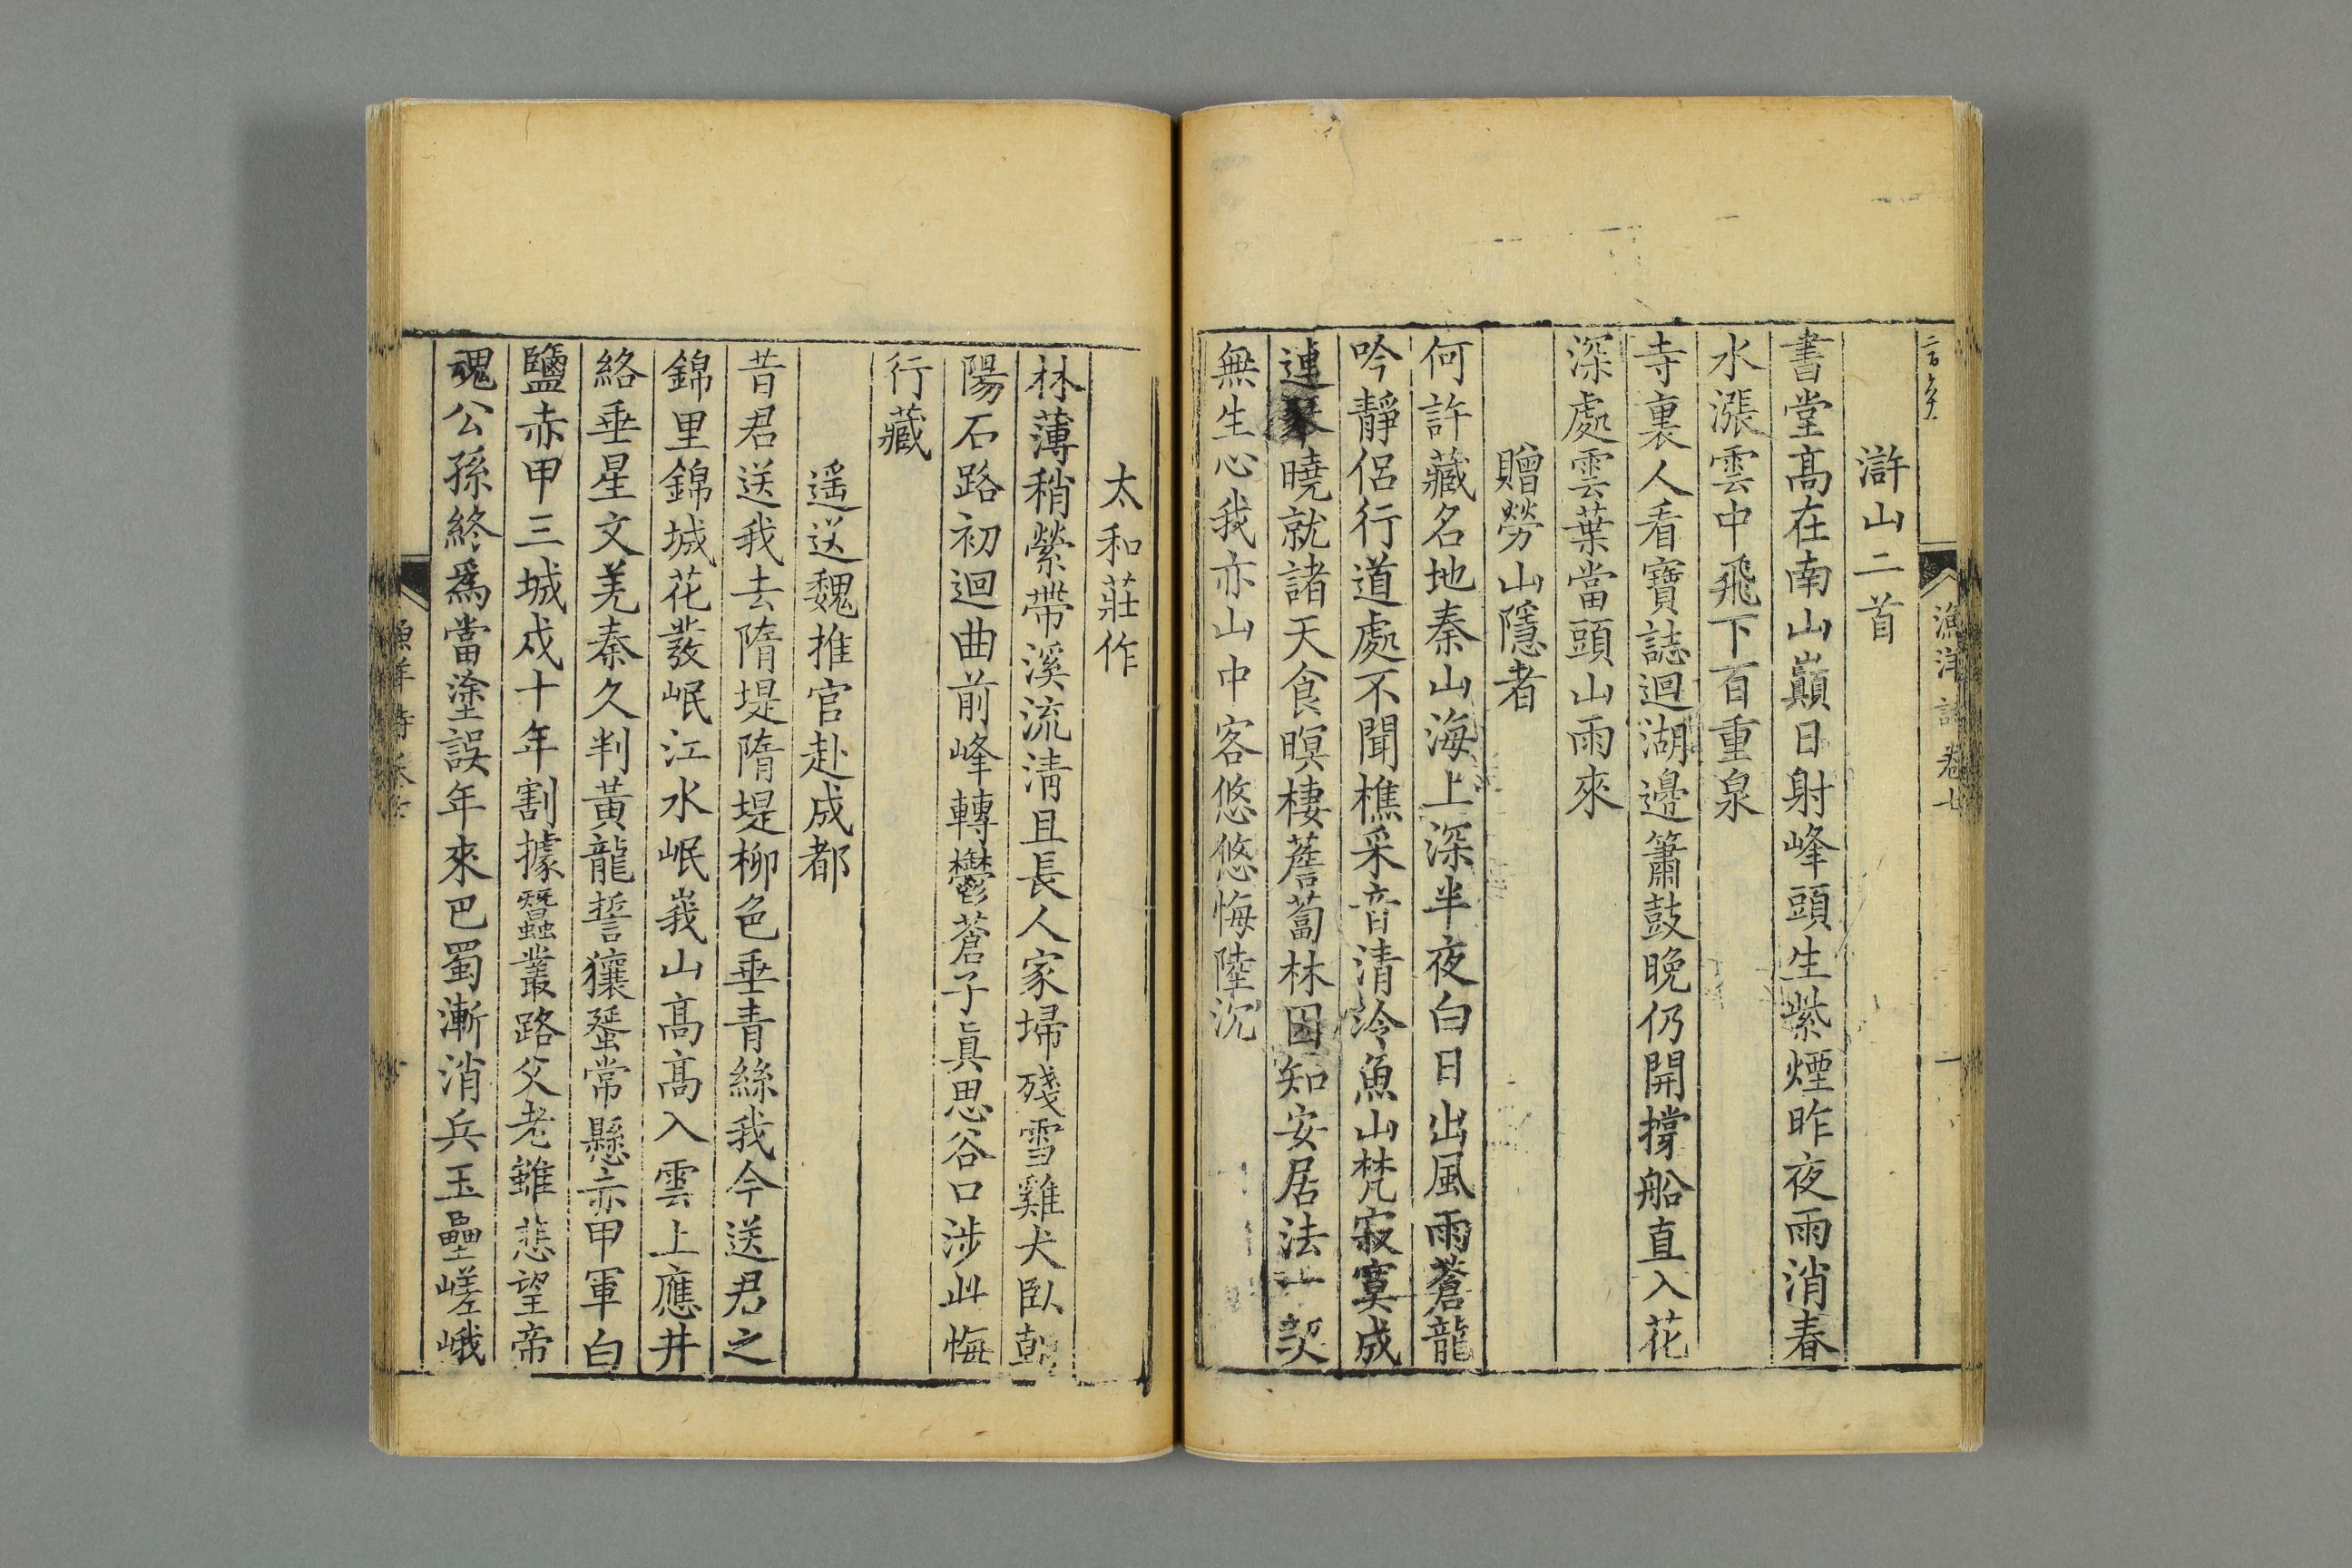 漁洋詩卷七
一
滸山二首
書堂高在南山巔日射峰頭生紫煙昨夜雨消春
水漲雲中飛下百重泉
寺裏人看寶誌迴湖邊簫鼓晚仍開撐船直入花
深處雲葉當頭山雨來
贈勞山隱者
何許藏名地秦山海上深半夜白日出風雨蒼龍
吟靜侶行道處不聞樵采音清泠魚山梵寂寞成
連琴曉就諸天食暝棲薝蔔林因知安居法一契
無生心我亦山中客悠悠悔陸沉
太和莊作
林薄稍縈帶溪流淸且長人家埽殘雪雞犬臥朝
陽石路初迴曲前峰轉鬱蒼子眞思谷口涉此悔
行藏
遥送魏推官赴成都
昔君送我去隋堤隋堤柳色垂青絲我今送君之
錦里錦城花發岷江水岷峩山高高入雲上應井
絡垂星文羌秦久判黃龍誓獽蜑常懸赤甲軍白
鹽赤甲三城戍十年割據蠶叢路父老雖悲望帝
魂公孫終爲當塗誤年來巴蜀漸消兵玉壘嵯峨